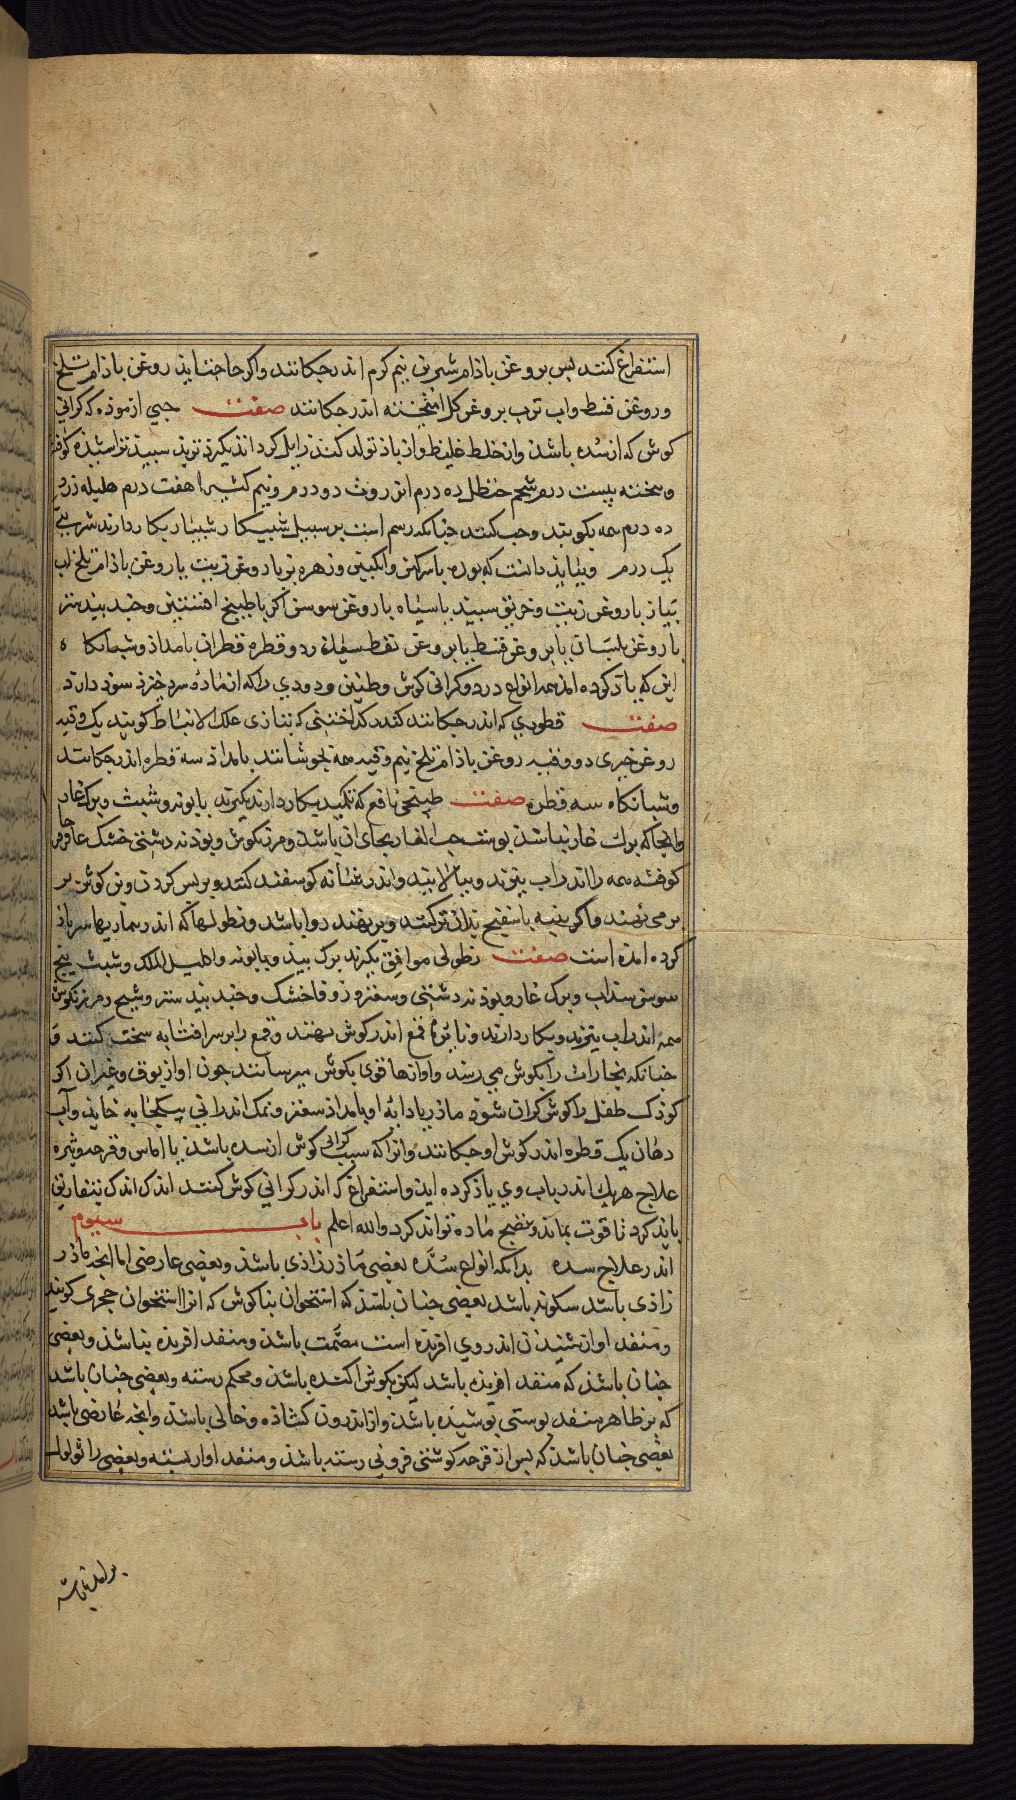 استفراغ کنند پس بروغن باذام شیرین نیم کرم اندرجکانند واکر حاجتاید روغن باذام تلخ
وروغن قسط واب ترب بروغن کل امیخته اندرجکانند صفت حبی ازموده که کرانی
کوش که ازسده باشد واز خلط غلیظ واز باذ تولد کند زایل کرداند بکیرند تربد سپید تراشیده کوفته
وبیخته بیست درم شحم حنظل ده درم انزروت دو درم ونیم کثیرا هفت درم هلیله زرد
ده درم همه بکوبند وحب کنند جنانکه رسم است بر سبیل شبیکار شبیار بکار دارند شربتی
یک درم وبباید دانست که بوره باسرکین وانکبین وزهره بز باروغن زیت یا روغن باذام تلخ اب
بیاز باروغن زیت وخربق سپید باسیاه باروغن سوسن اکر باطبیخ افسنتین وجند بیدستر
باروغن بلسان یابروغن قسط یابروغن نفط سفید دو قطره قطران بامداذ وشبانکاه
این که یاذ کرده امد همه انواع درد وکرانی کوش وطنین ودودی راکه از ماده سرد خیزد سوذ دارد
صفت قطوری که اندرجکانند کندر که اخنثی که بتازی علک الانباط کویند یک وقیه
روغن خیری دو وقیه روغن باذام تلخ نیم وقیه همه بجوشانند بامداد سه قطره اندرجکانند
وشبانکاه سه قطره صفت طبیخی نافع که تکمید بکار دارند بکیرند بابونه وشبث وبرک غار
وانجاکه برک غار نباشد بوست حب الغار بجای ان باشد ومرزنکوش وپوذنه دشتی خشک عاقرقرحا
کوفته همه را اندراب بپزند وببالایند واندر مثانه کوسفند کنند وبر پس کردن وبن کوش بر
برمی نهند واکر بنیه یا سفنج بدان تر کنند وبر نهند روا باشد ونطولها که اندر بیماریها سر یاذ
کرده امده است صفت نطولی موافق بکیرند برک بید وبابونه واکلیل الملک وشبث بیخ
سوسن سداب وبرک غار وپوذنه دشتی وسعتر وزوفا خشک وجند بیدستر وشیح ومرزنکوش
همه اندراب بپزند وبکار دارند ونایژه قمع اندر کوش نهند وقمع را بر سر افتابه سخت کنند و
جنانکه بخارات را بکوش می رسد واوازها قوی بکوش میرسانند جون اواز بوق وغیران اکر
کوذک طفل را کوش کران شوذ ماذر یا دایه او بامداذ سعتر ونمک اندرانی بیکجایه خاید واب
دهان یک قطره اندر کوش او جکانند وانرا که سبب کرانی کوش از سده باشد یا اماس وقرحه وثیره
علاج هریک اندر باب وی یاذ کرده اید واستفراغ که اندر کرانی کوش کنند اندک اندک بتفاریق
باید کرد تا قوت بماند ونضج ماده تواند کرد والله اعلم باب سیوم
اندر علاج سده بدانکه انواع سده بعضی ماذرزاذی باشد وبعضی عارضی اما انجه ماذر
زاذی باشد سکونه باشد بعضی جنان باشد که استخوان بناکوش که انرا استخوان حجری کویند
ومنفد اواز شنیدن اندروی افریده است مصمت باشد ومنفد افریده نباشد وبعضی
جنان باشد که منفد افریده باشد لیکن بکوش اکنده باشد ومحکم رسته وبعضی جنان باشد
که بر ظاهر منفد پوستی پوشیده باشد واز اندرون کشاذه وخالی باشد وانجه عارضی باشد
بعضی جنان باشد که پس از قرحه کوشتی فزونی رسته باشد ومنفد اواز بسته وبعضی را ثولول